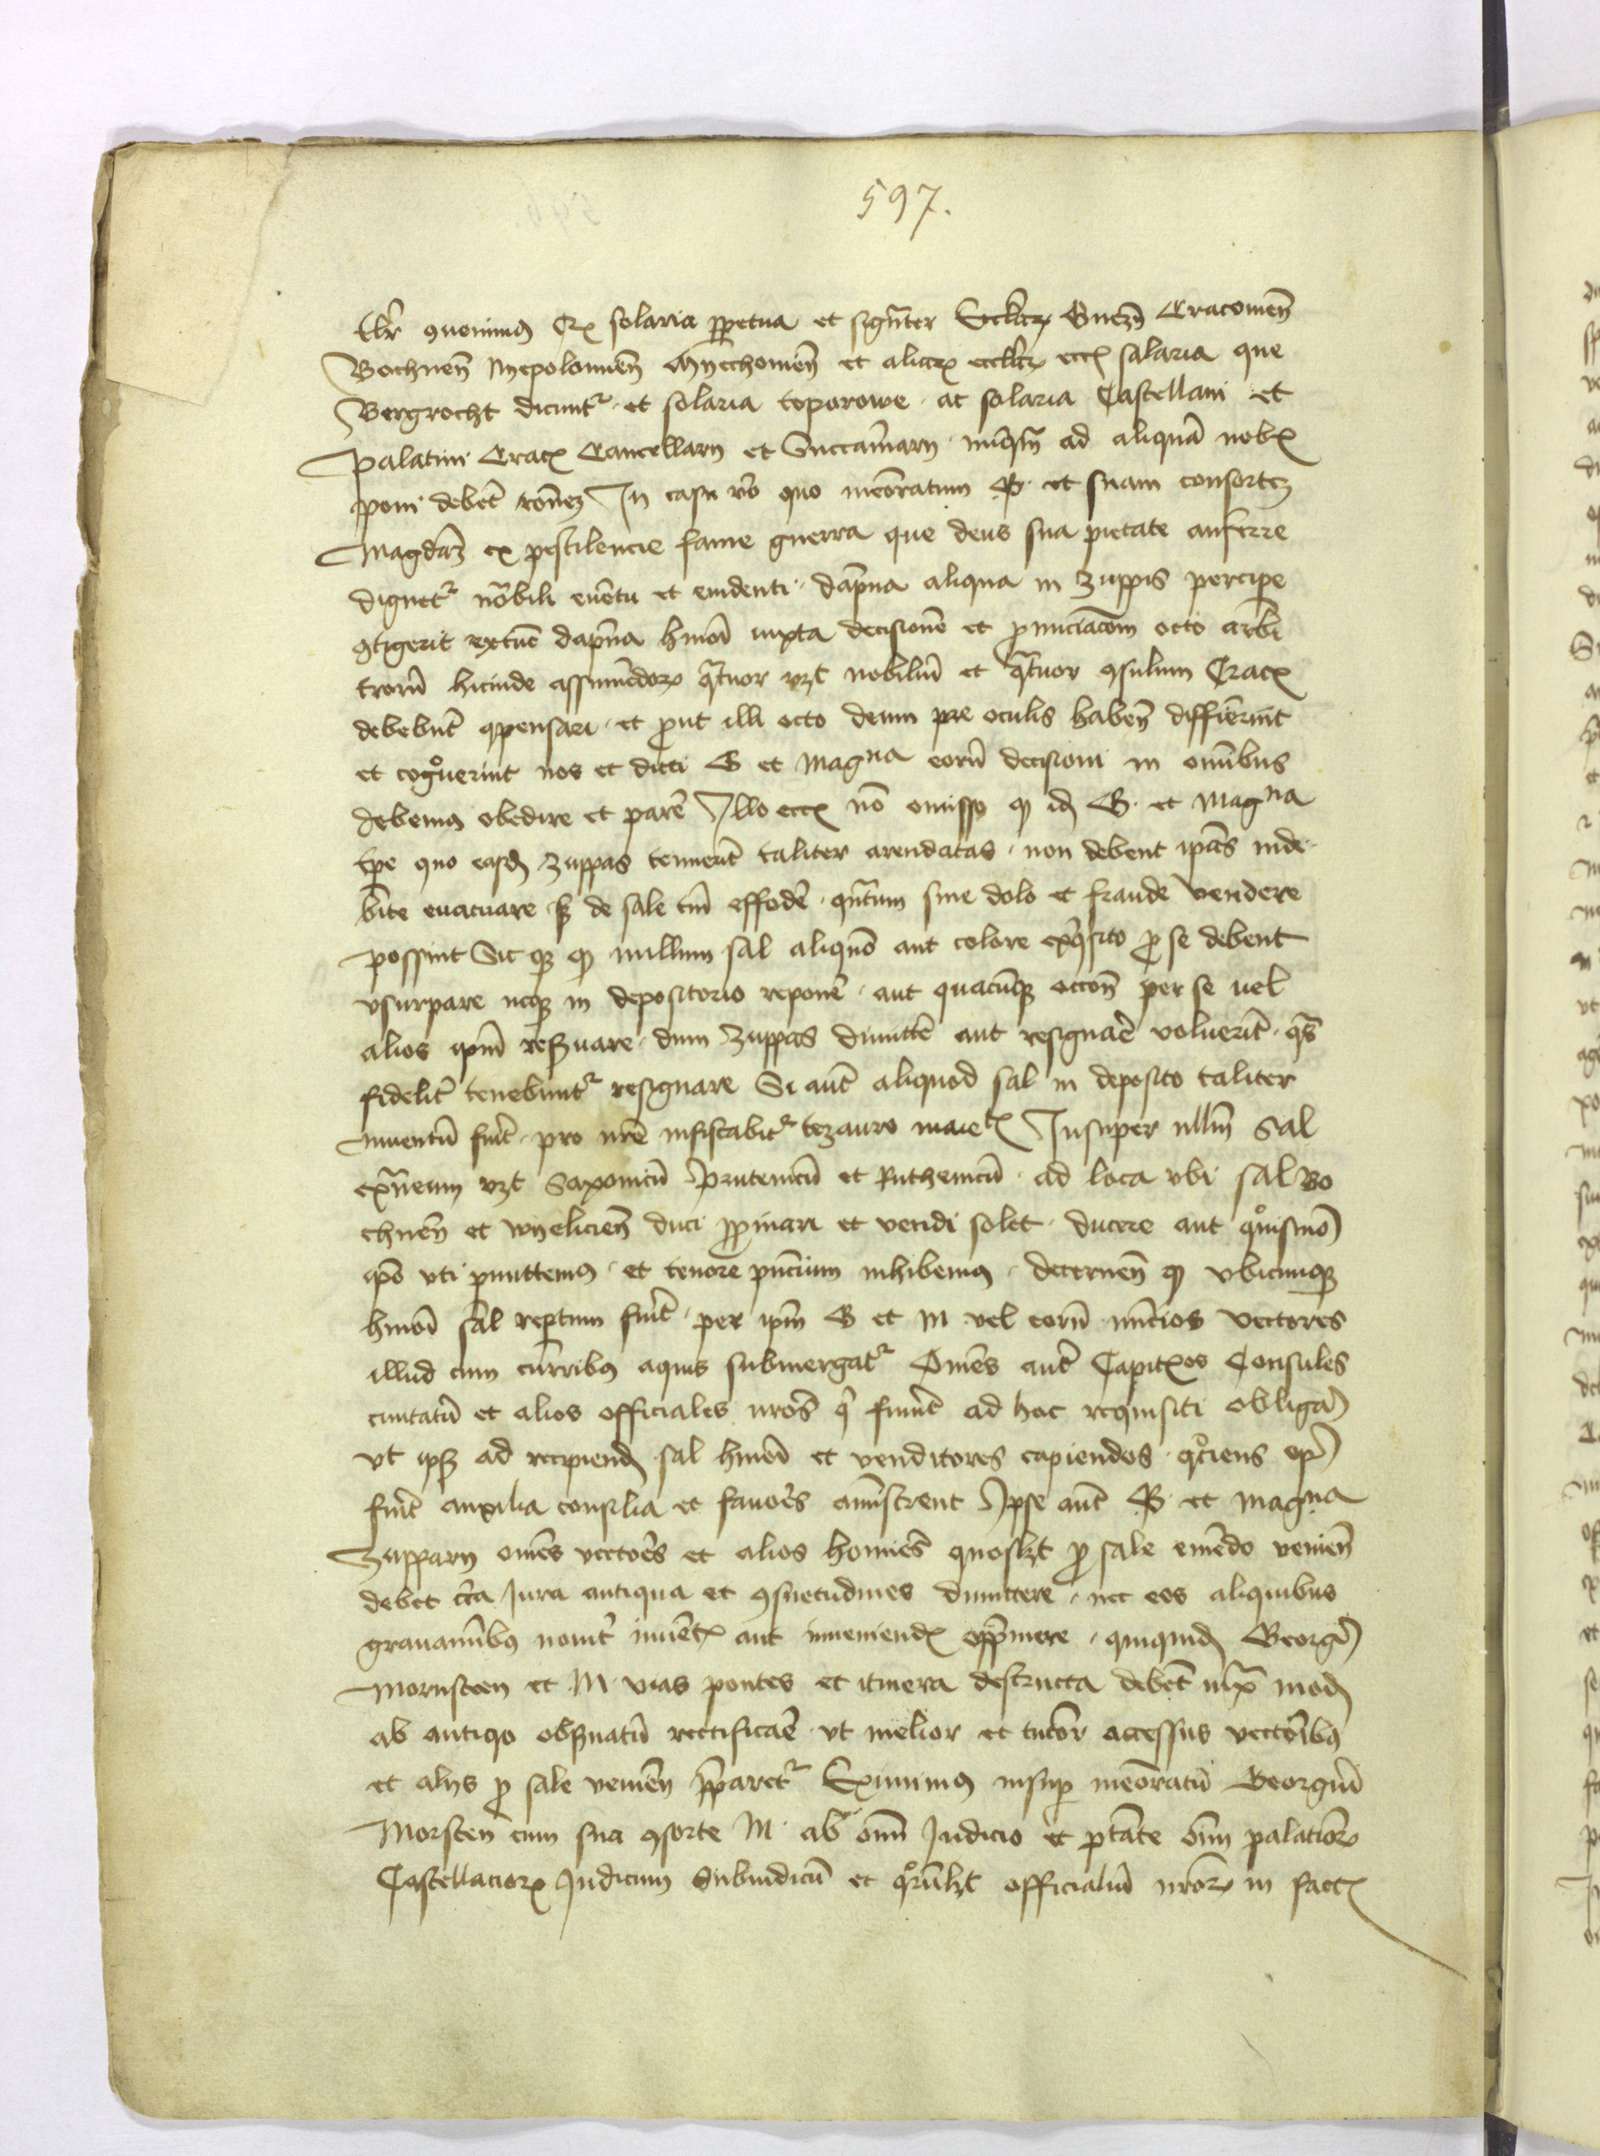 597.
conuenimus solaria perpetua et signanter Ecclesiarum Gnezn Cracouien
Bochnen Nyepolomien Myechouien et aliarum ecclesiarum ecciam salaria que
Bergrocht dicuntur et solaria toporowe ac solaria Castellani et
Palatini Crac Cancellarij et Succamerarij ad aliquam nobis
poni debent In casu vero quo memoratum G et suam consortem
Magdam ex pestilencie fame guerra que deus sua pietate aufferre
dignetur notabili euentu et euidenti dampna aliqua in zuppis percipere
contigerit extunc dampna huiusmodi iuxta decisionem et pronunciacionem octo arbi
trorum hicinde assumendorum quatuor videlicet nobilium et quatuor consulum Crac
debebunt compensari et prout illi octo deum pre oculis haben diffinierint
et cognouerint nos et dicti G et Magna eorum decisioni in omnibus
debemus obedire et parere Illo ecciam non omisso quod idem G et Magna
tempore quo easdem zuppas tenuerint taliter arendatas non debent ipsas inde
bite euacuare sed de sale tantum effodere quantum sine dolo et fraude vendere
possint Sic quod nullum sal aliquo aut colore exquisito pro se debent
vsurpare neque in depositorio reponere aut quacunque occasione per se uel
alios ipsum reseruare dum zuppas dimittere aut resignare voluerint quas
fideliter tenebuntur resignare Si autem aliquod sal in deposito taliter
inuentum fuerit pro nostre infiscabitur tezauro maiestatis Insuper nullum Sal
extraneum videlicet Saxonicum Prutenicum et Ruthenicum ad loca vbi sal Bo
chnen et wyelicien duci propinari et vendi solet ducere aut quouismodo
ipso vti permittemus et tenore presencium inhibemus decernen quod vbicunque
huiusmodi sal repertum fuerit per ipsum G et M vel eorum nuncios vectores
illud cum curribus aquis submergatur Omnes autem Capitaneos Consules
ciuitatum et alios officiales nostros qui fuerint ad hoc requisiti obligamus
vt ipsis ad recipiendum sal huiusmodi et venditores capiendos quociens opus
fuerit auxilia consilia et fauores administrent Ipse autem G et Magna
Zupparij omnes vectores et alios homines quoslibet pro sale emendo venien
debet circa Iura antiqua et consuetudines dimittere nec eos aliquibus
grauaminibus nouiter inuentis aut inueniendis opprimere quiquidem Georgius
Mornsteen et M vias pontes et itinera destructa debent iuxta modum
ab antiquo obseruatum rectificare vt melior et tucior accessus vectoribus
et alijs pro sale venien preparetur Eximimus insuper memoratum Georgium
Morsten cum sua consorte M ab omni Iudicio et potestate omnium palatinorum
Castellanorum Iudicum Subiudicum et quorumlibet officialium nostrorum in factis